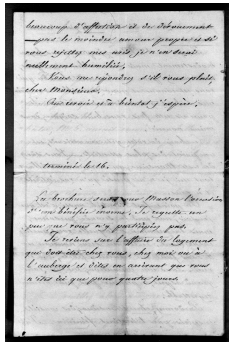 beaucoup d'affection et de dévouement
pas le moindre amour propre et si
vous rejettez mes avis je n'en serai
nullement humiliée.
Vous me répondrez s'il vous plait,
cher Monsieur.
Au revoir et à bientot j'espère.
terminée le 16.
La brochure sera pour Masson l'occasion
d'un bénéfice énorme. Je regrette un
peu que vous n'y participiez pas.
Je reviens sur l'affaire du logement
que doit être chez vous, chez moi ou à
l'auberge et dites en arrivant que vous
n'êtes ici que pour quatre jours.